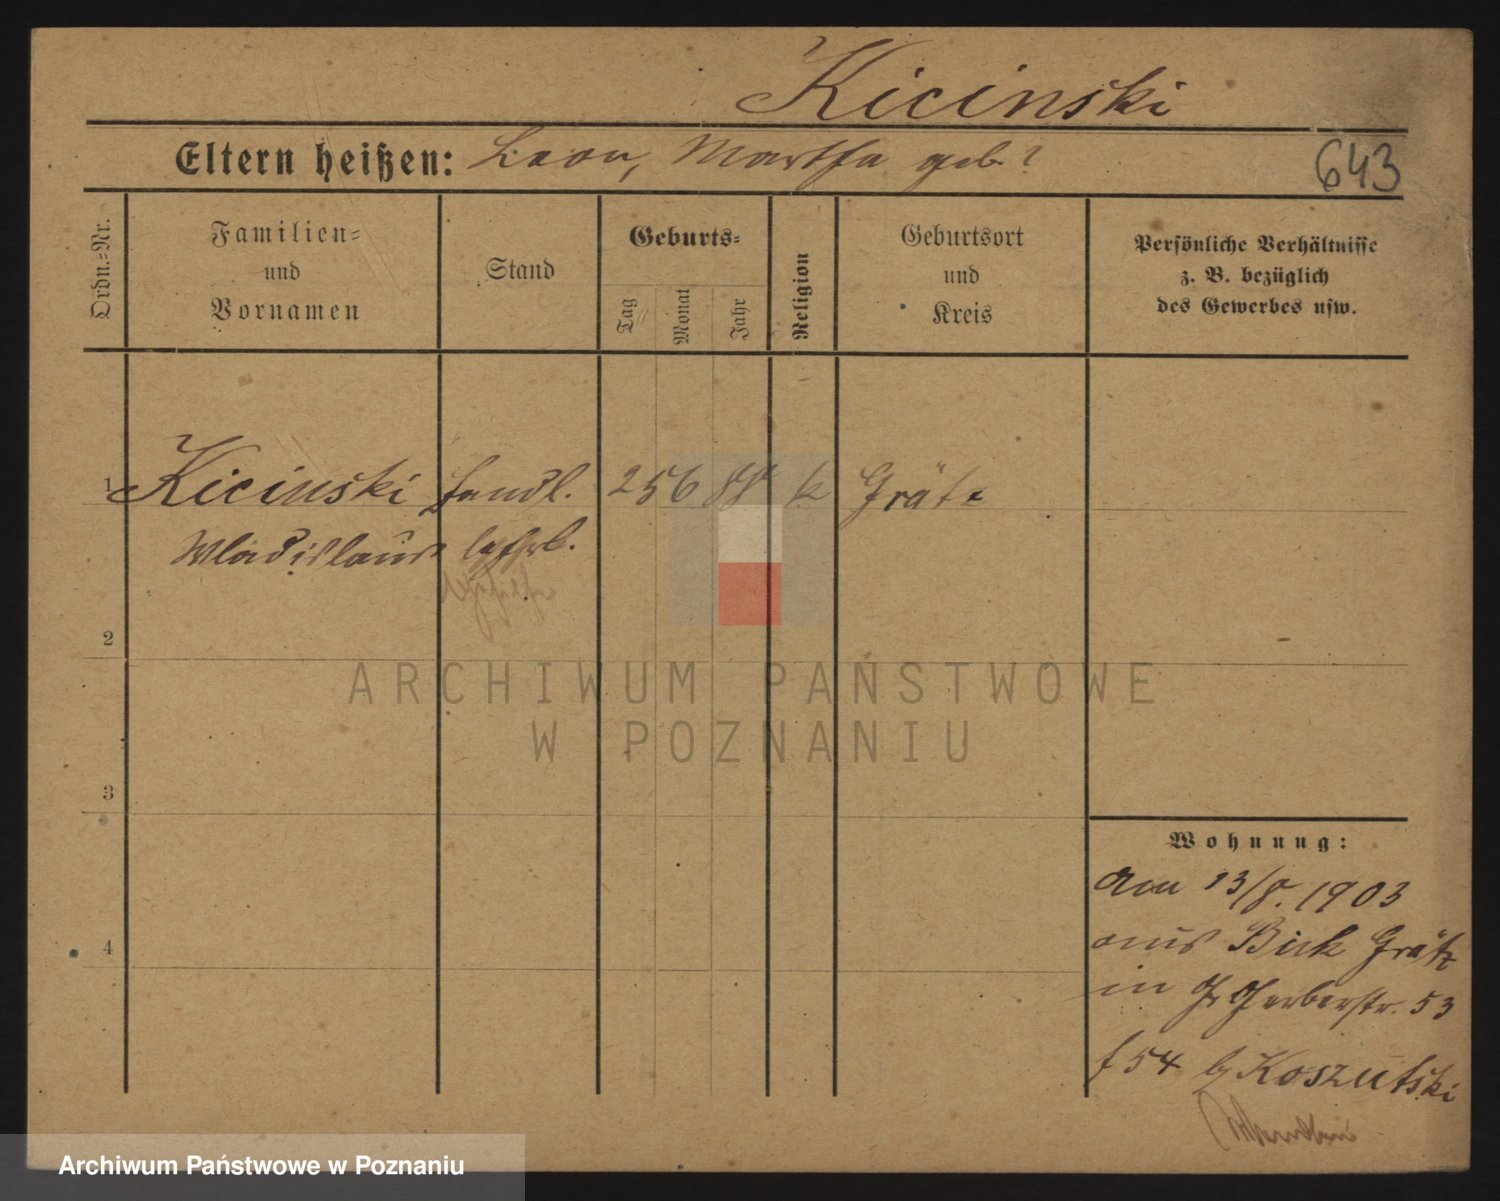 Kicinski
Eltern heißen: Leon, Martha geb?
643
Ordn.-Nr.
Familien-
und
Vornamen
Stand
Geburts-
Tag
Monat
Jahr
Religion
Geburtsort
und
Kreis
Persönliche Verhältnisse
z. B. bezüglich
des Gewerbes usw.
1 Kicinski Handl. 25 6 k Grätz
Wladislaus
2
3
4
ARCHIWUM PAŃSTWOWE
W POZNANIU
Wohnung:
Am 13/8. 1903
aus Buk Grätz
in Gr Gerberstr. 53
54 Koszutski
Archiwum Państwowe w Poznaniu